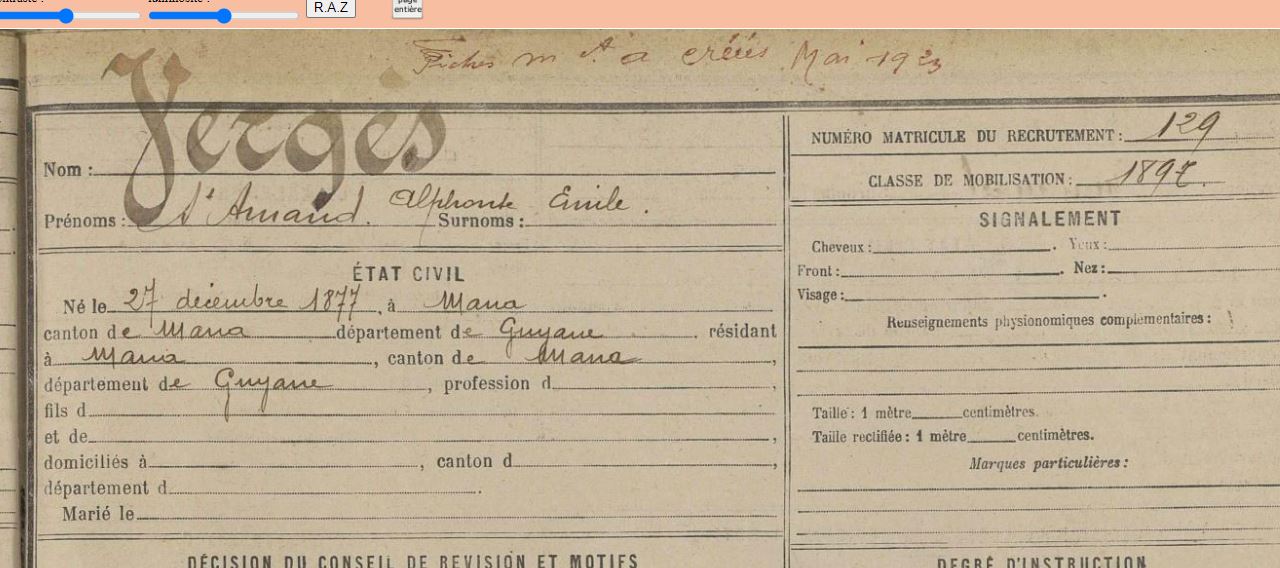 R.A.Z
page
entière
Fiches m le A a créées Mai 1923
Nom : Verges
Prénoms : St Amand. Alphonse Emile. Surnoms :
ÉTAT CIVIL
Né le 27 décembre 1877, à Mana
canton de Mana département de Guyane. résidant
à Mana, canton de Mana,
département de Guyane, profession d,
fils d
et de,
domiciliés à, canton d,
département d.
Marié le
DÉCISION DU CONSEIL DE REVISION ET MOTIFS
NUMÉRO MATRICULE DU RECRUTEMENT : 129
CLASSE DE MOBILISATION : 1897.
SIGNALEMENT
Cheveux :. Yeux :
Front :. Nez :
Visage :.
Renseignements physionomiques complémentaires :
Taille : 1 mètre centimètres.
Taille rectifiée : 1 mètre centimètres.
Marques particulières :
DEGRÉ D'INSTRUCTION